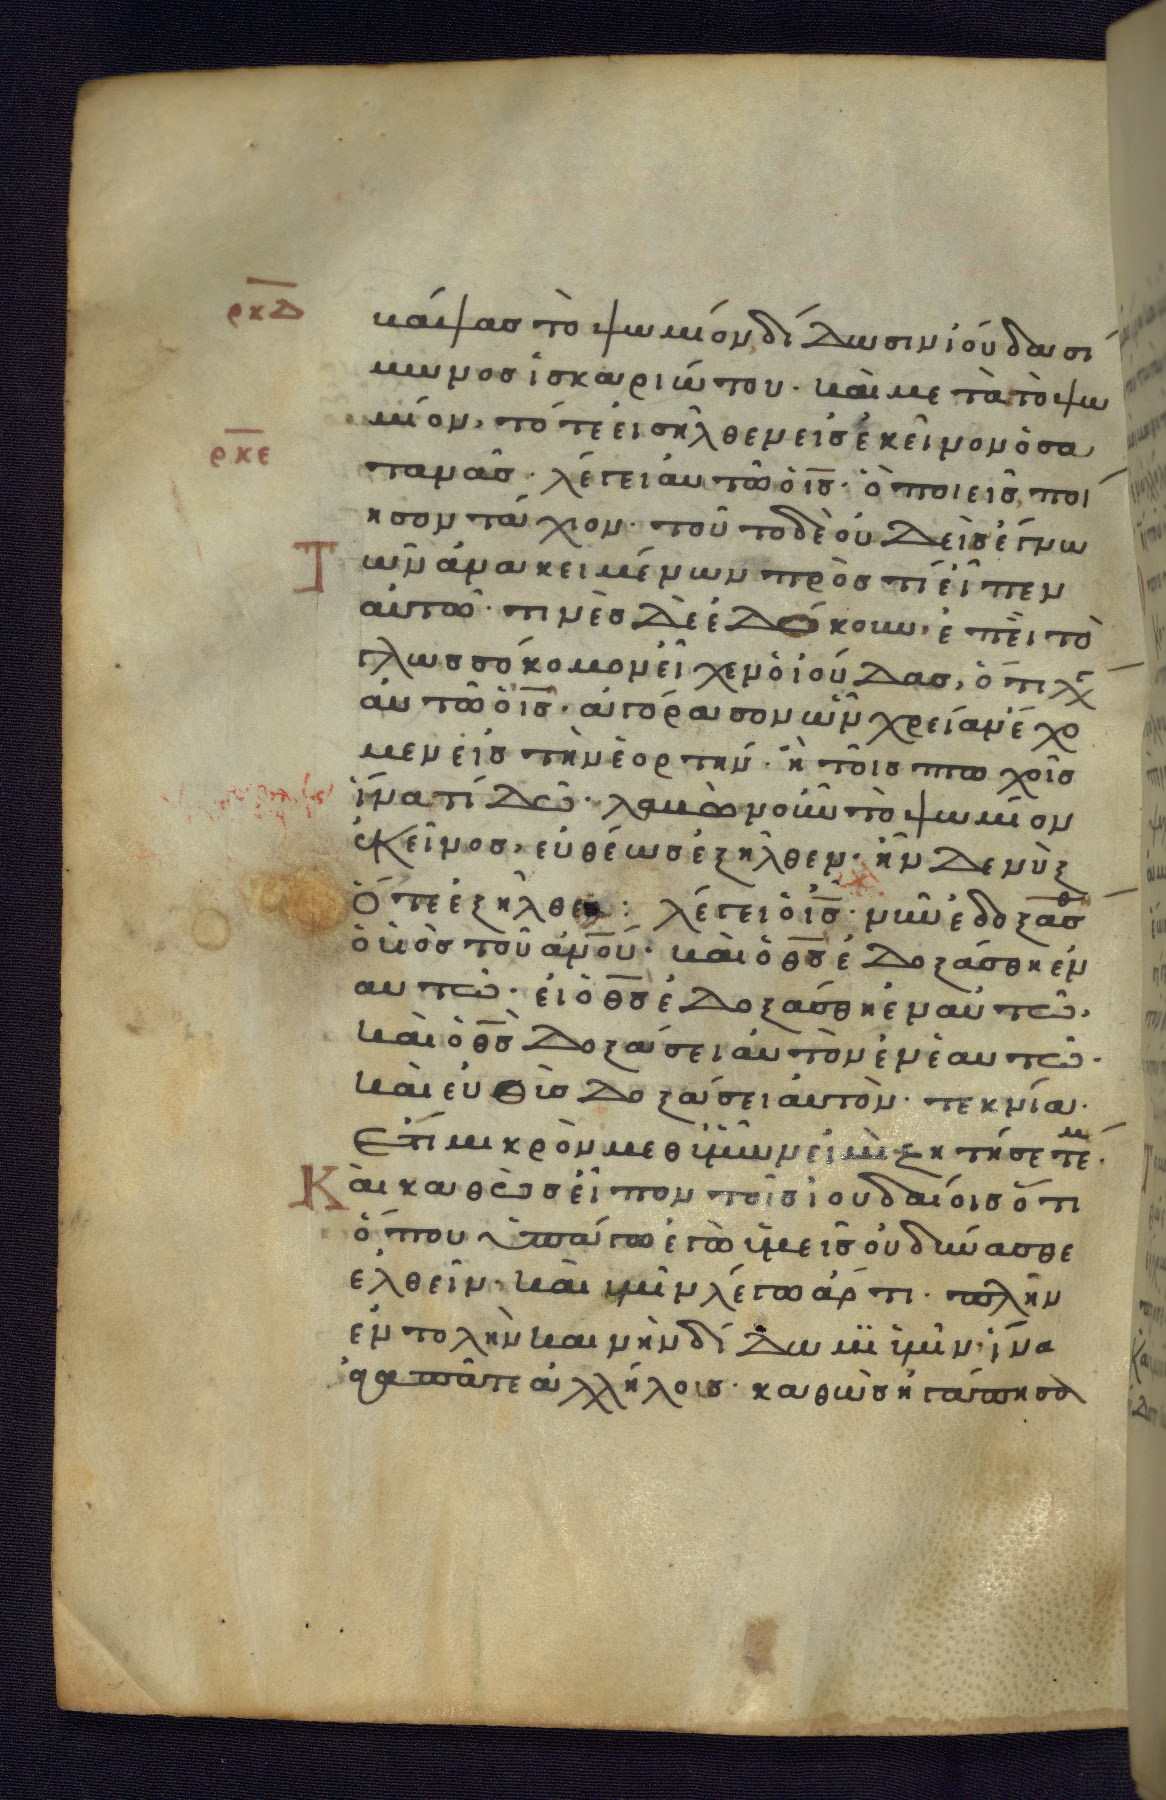 ρκδ
βάψας τὸ ψωμίον δίδωσιν ἰούδα σί
μωνος ἰσκαριώτου· καὶ μετὰ τὸ ψω
μίον, τότε εἰσῆλθεν εἰς ἐκεῖνον ὁ σα
ρκε
τανᾶς· λέγει αὐτῶ ὁ ι̅ς̅· ὃ ποιεῖς ποί
ησον τάχιον· τοῦτο δὲ οὐδεὶς ἔγνω
Τῶν ἀνακειμένων πρὸς τί εἶπεν
αὐτῶ· τινὲς δὲ ἐδόκουν, ἐπεὶ τὸ
γλωσσόκομον εἶχεν ὁ ἰούδας, ὅτι λέγει
αὐτῶ ὁ ι̅ς̅· ἀγόρασον ὧν χρείαν ἔχο
μεν εἰς τὴν ἑορτήν· ἢ τοῖς πτωχοῖς
ἵνα τί δῶ· λαβὼν οὖν τὸ ψωμίον
ἐκεῖνος, εὐθέως ἐξῆλθεν· ἦν δε νὺξ
Ὅτε ἐξῆλθεν: λέγει ὁ ι̅ς̅· νῦν ἐδοξάσθ
ὁ υ̅ς̅ τοῦ α̅ν̅ο̅υ̅· καὶ ὁ θ̅ς̅ ἐδοξάσθη ἐν
αυτῶ· εἰ ὁ θ̅ς̅ ἐδοξάσθη ἐν αὐτῶ,
καὶ ὁ θ̅ς̅ δοξάσει αὐτὸν ἐν ἑαυτῶ·
καὶ εὐθὺς δοξάσει αὐτὸν· τεκνία·
Ετι μικρὸν μεθ ὑμῶν εἰμὶ· ζητήσετέ μ·
Καὶ καθὼς εἶπον τοῖς ἰουδαίοις ὅτι
ὅπου ὑπάγω ἐγὼ ὑμεῖς οὐ δύνασθε
ελθεῖν· καὶ ὑμῖν λέγω ἄρτι· πλὴν
εντολὴν καινὴν δίδωμι ὑμῖν· ἵνα
ἀγαπᾶτε ἀλλήλους· καθὼς ἠγάπησα